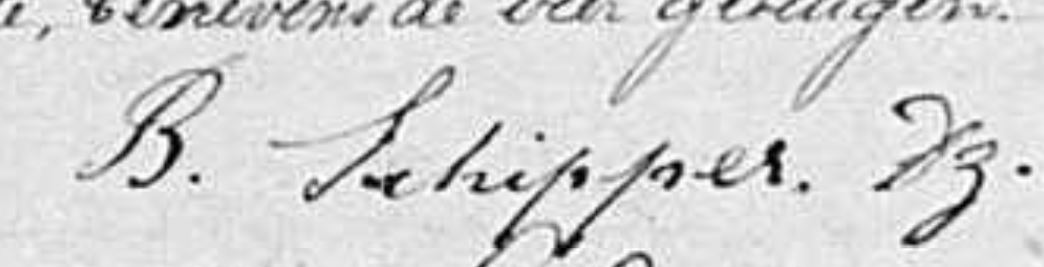 , benevens de vier getuigen.
B. Schipper. Dz.